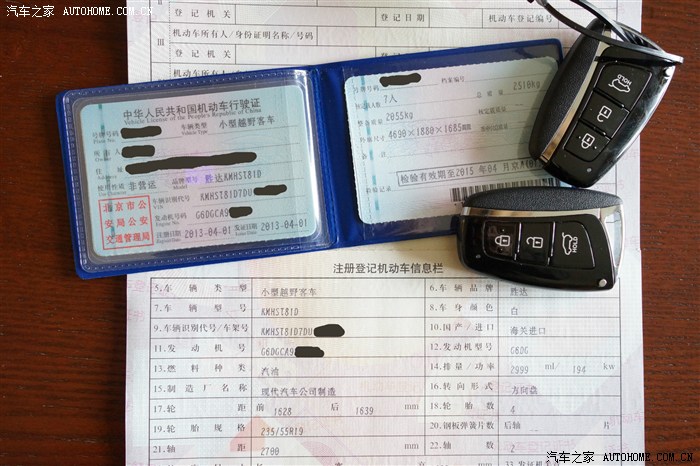 汽车之家 AUTOHOME.COM.CN
登记机关
登记日期
机动车登记编号
III
机动车所有人/身份证明名称/号码
登记机关
中华人民共和国机动车行驶证
Vehicle License of the People's Republic of China
号牌号码
车辆类型 小型越野客车
所有人
住址
使用性质 非营运
品牌型号 胜达KMHST81D
北京市公
安局公安
交通管理局
车辆识别代号 KMHST81D7DU
发动机号码 G6DGCA9
注册日期 2013-04-01 发证日期 2013-04-01
号牌号码
档案编号
核定载人数 7人
总质量 2510kg
整备质量 2055kg
核定载质量
外廓尺寸 4690×1880×1685mm
检验记录
检验有效期至2015年04月
HOLD
HOLD
注册登记机动车信息栏
5.车辆类型 小型越野客车 6.车辆品牌 胜达
7.车辆型号 KMHST81D 8.车身颜色 白
9.车辆识别代号/车架号 KMHST81D7DU 10.国产/进口 海关进口
11.发动机号 G6DGCA9 12.发动机型号 G6DG
13.燃料种类 汽油 14.排量/功率 2999 ml/ 194 kw
15.制造厂名称 现代汽车公司制造 16.转向形式 方向盘
17.轮距 前 1628 后 1639 mm 18.轮胎数 4
19.轮胎规格 235/55R19 20.钢板弹簧片数 后轴 片
21.轴距 2700 mm 22.轴数 2
汽车之家 AUTOHOME.COM.CN